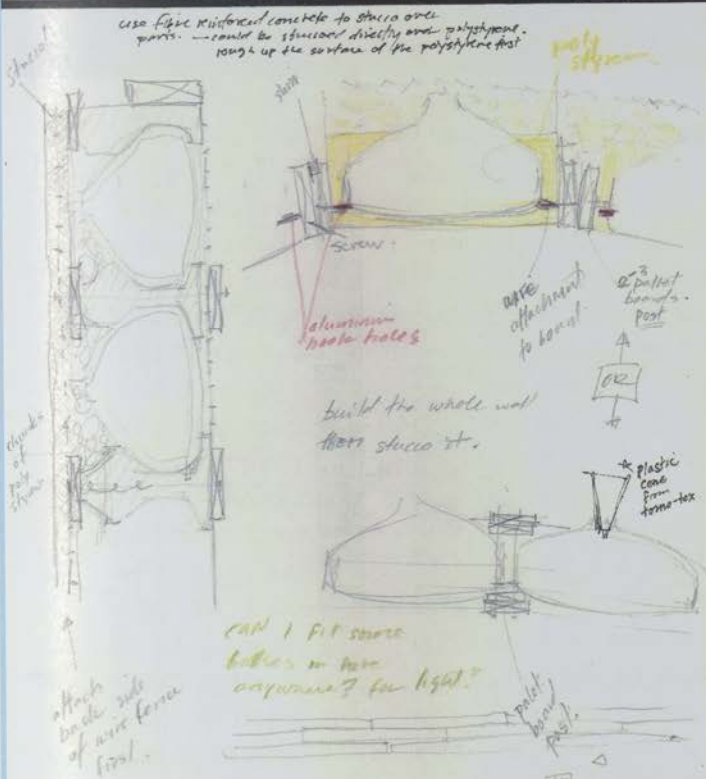 use fibre reinforced concrete to stucco over
parts. — could be stuccoed directly over polystyrene.
rough up the surface of the polystyrene first
stucco
poly
styrene
shim
screw.
aluminium
wire
attachment
to board.
2-3
pallet
boards.
post
OR
build the whole wall
then stucco it.
chunks
of
poly
styrene
plastic
cone
from
CAN I fit some
bottles in here
anywhere? for light?
attach
back side
of wire fence
first.
palet
board
post.